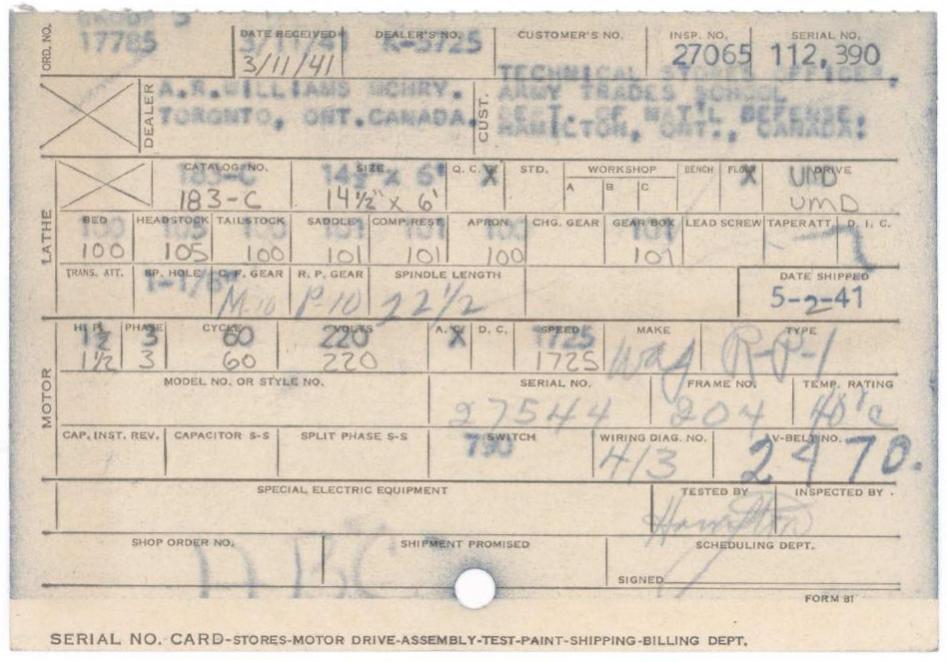 GROUP 3
ORD. NO. 17785 DATE RECEIVED 3/11/41 DEALER'S NO. K-5725 CUSTOMER'S NO. INSP. NO. 27065 SERIAL NO. 112,390
3/11/41
DEALER A.R.WILLIAMS MCHRY. CUST. TECHNICAL STORES OFFICER,
TORONTO, ONT.CANADA. ARMY TRADES SCHOOL
DEPT. OF NAT'L DEFENSE,
HAMILTON, ONT., CANADA.
LATHE
CATALOG NO. SIZE Q. C. X STD. WORKSHOP BENCH FLOOR X DRIVE
A B C
183-C 14½" x 6' UMD
183-C 14½" x 6' UMD
BED HEADSTOCK TAILSTOCK SADDLE COMP. REST APRON CHG. GEAR GEAR BOX LEAD SCREW TAPER ATT. D. I. C.
100 105 100 101 101 100 101
100 105 100 101 101 100 101
TRANS. ATT. SP. HOLE Q. F. GEAR R. P. GEAR SPINDLE LENGTH DATE SHIPPED
M-10 P-10 22 1/2 5-2-41
MOTOR
H. P. PHASE CYCLE VOLTS A. C. X D. C. SPEED MAKE TYPE
1½ 3 60 220 1725 Wag R-P-1
1½ 3 60 220 1725
MODEL NO. OR STYLE NO. SERIAL NO. FRAME NO. TEMP. RATING
27544 204 40°C
CAP. INST. REV. CAPACITOR S-S SPLIT PHASE S-S SWITCH WIRING DIAG. NO. V-BELT NO.
790 413 2470.
SPECIAL ELECTRIC EQUIPMENT TESTED BY INSPECTED BY
Hamilton
SHOP ORDER NO. SHIPMENT PROMISED SCHEDULING DEPT.
SIGNED
FORM 81
SERIAL NO. CARD-STORES-MOTOR DRIVE-ASSEMBLY-TEST-PAINT-SHIPPING-BILLING DEPT.